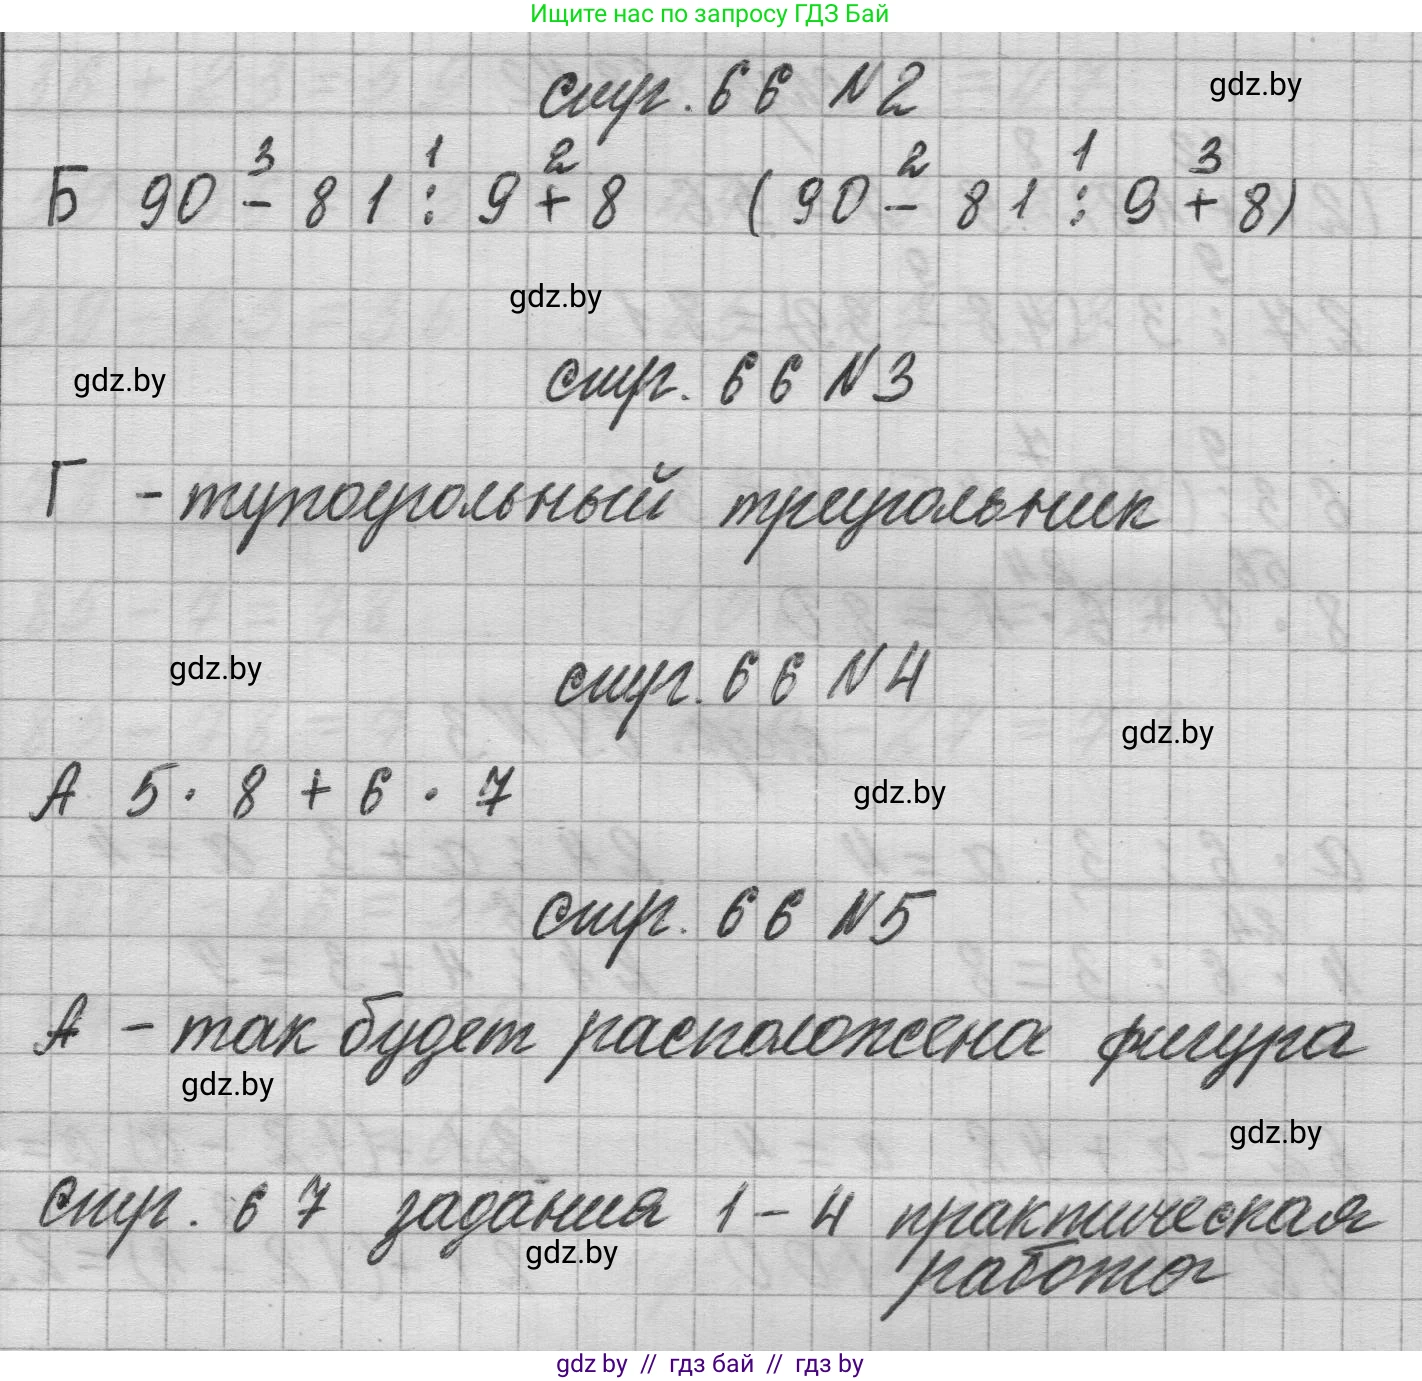 Ищите нас по запросу ГДЗ Бай
стр. 66 N2
gdz.by
3 1 2 2 1 3
Б 90 - 81 : 9 + 8 (90 - 81 : 9 + 8)
gdz.by
стр. 66 N3
gdz.by
Г - тупоугольный треугольник
стр. 66 N4
gdz.by
gdz.by
А 5 · 8 + 6 · 7
gdz.by
стр. 66 N5
А - так будет расположена фигура
gdz.by
gdz.by
стр. 67 задания 1 - 4 практическая
работа
gdz.by
gdz by // гдз бай // гдз by